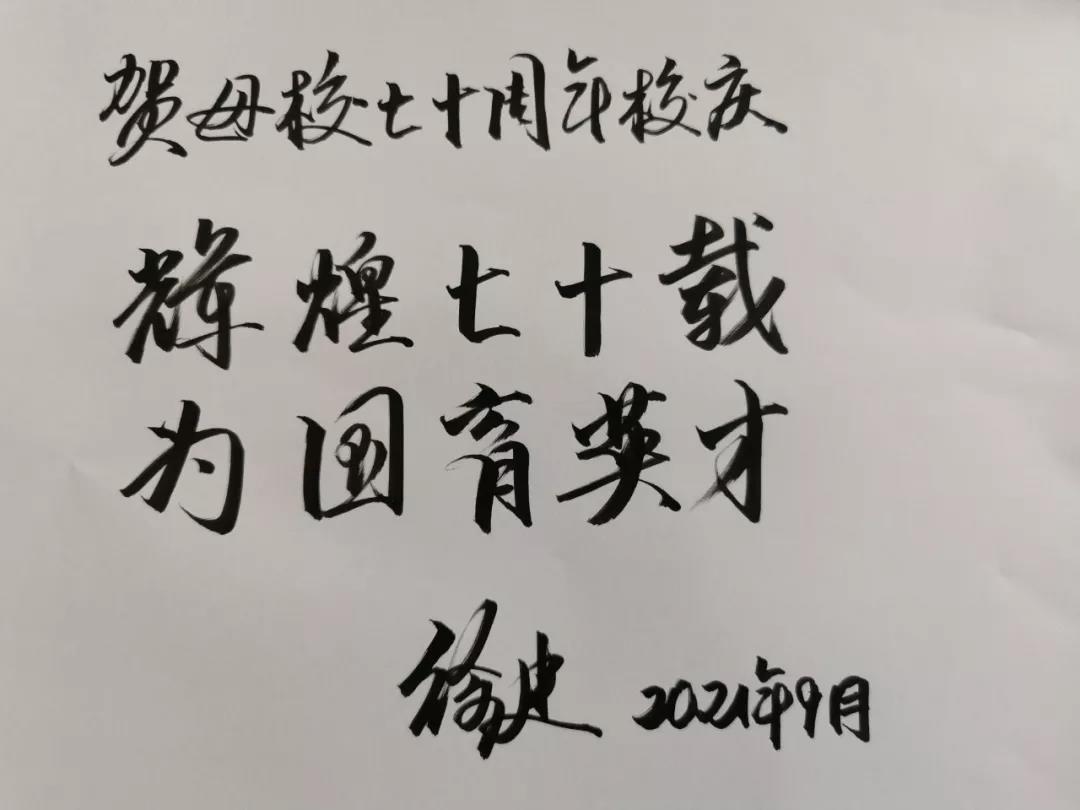 贺母校七十周年校庆
辉煌七十载
为国育英才
徐建 2021年9月